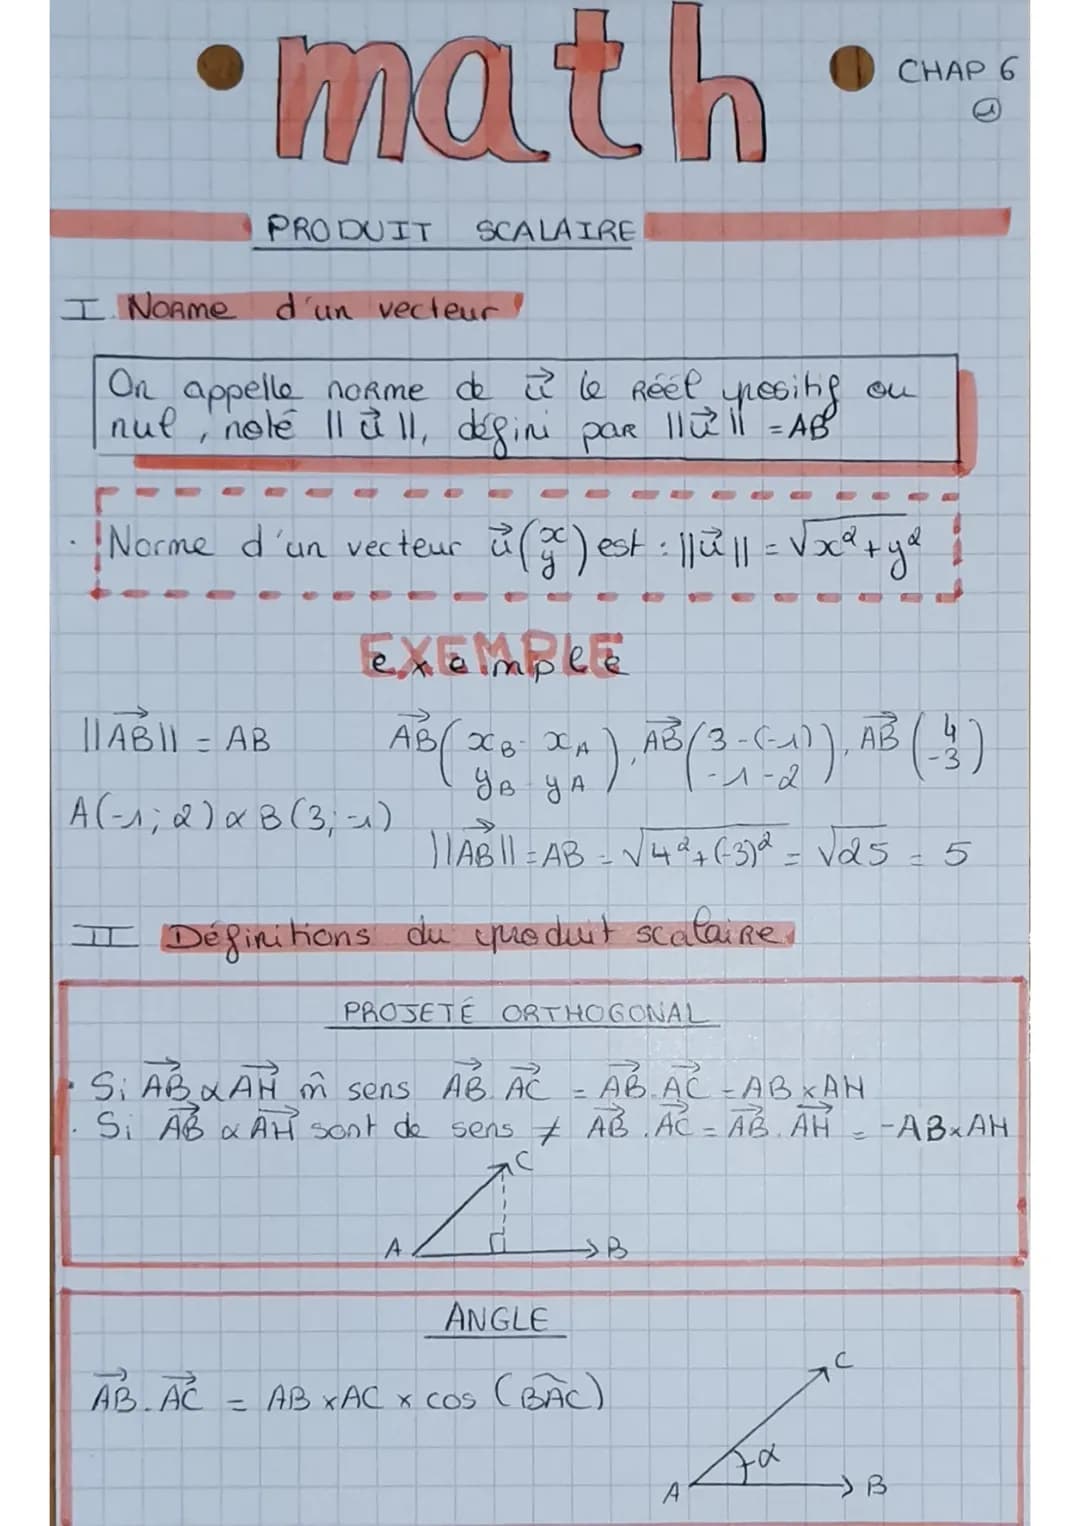 math
CHAP 6
1
PRODUIT SCALAIRE
I. Norme d'un vecteur
On appelle norme de u⃗ le réel positif ou
nul, noté ||u⃗||, défini par ||u⃗|| = AB
Norme d'un vecteur u⃗(x y) est : ||u⃗|| = √(x²+y²)
EXEMPLE
exemple
||AB⃗|| = AB
AB⃗(xB - xA yB - yA), AB⃗(3-(-1) -1-2), AB⃗(4 -3)
A(-1; 2) & B(3; -1)
||AB⃗|| = AB = √(4²+(-3)²) = √25 = 5
II Définitions du produit scalaire
PROJETÉ ORTHOGONAL
• Si AB⃗ & AH⃗ m̂ sens AB⃗.AC⃗ = AB⃗.AC⃗ = AB×AH
• Si AB⃗ & AH⃗ sont de sens ≠ AB⃗.AC⃗ = AB⃗.AH⃗ = -AB×AH
C
A B
ANGLE
AB⃗.AC⃗ = AB×AC×cos(BÂC)
C
α
A B